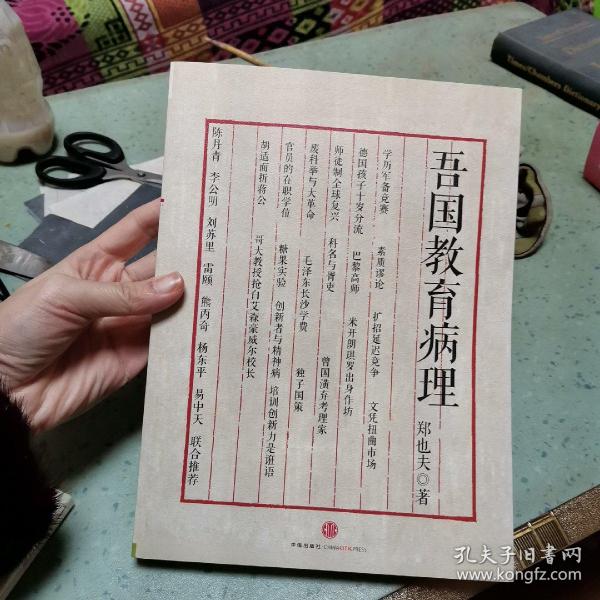 吾国教育病理
郑也夫◎著
学历军备竞赛 素质谬论 扩招延迟竞争 文凭扭曲市场
德国孩子十岁分流 巴黎高师 米开朗琪罗出身作坊
师徒制全球复兴 科名与胥吏 曾国潢弃考理家
废科举与大革命 毛泽东长沙学费 独子国策
官员的在职学位 糖果实验 创新者与精神病 培训创新力是诳语
胡适面折蒋公 哥大教授抢白艾森豪威尔校长
陈丹青 李公明 刘苏里 雷颐 熊丙奇 杨东平 易中天 联合推荐
中信出版社·CHINA CITIC PRESS
Times/Chambers Dictionary
孔夫子旧书网
www.kongfz.com